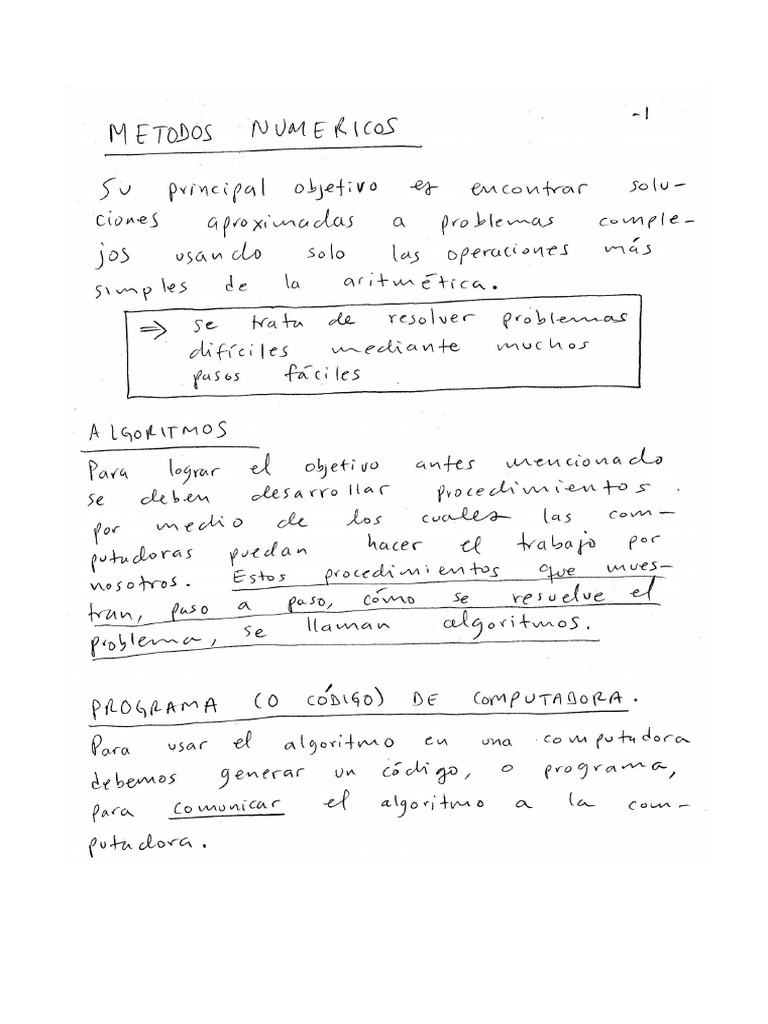 -1
METODOS NUMERICOS
Su principal objetivo es encontrar solu-
ciones aproximadas a problemas comple-
jos usando solo las operaciones más
simples de la aritmética.
⇒ se trata de resolver problemas
difíciles mediante muchos
pasos fáciles
ALGORITMOS
Para lograr el objetivo antes mencionado
se deben desarrollar procedimientos
por medio de los cuales las com-
putadoras puedan hacer el trabajo por
nosotros. Estos procedimientos que mues-
tran, paso a paso, cómo se resuelve el
problema, se llaman algoritmos.
PROGRAMA (O CÓDIGO) DE COMPUTADORA.
Para usar el algoritmo en una computadora
debemos generar un código, o programa,
para comunicar el algoritmo a la com-
putadora.